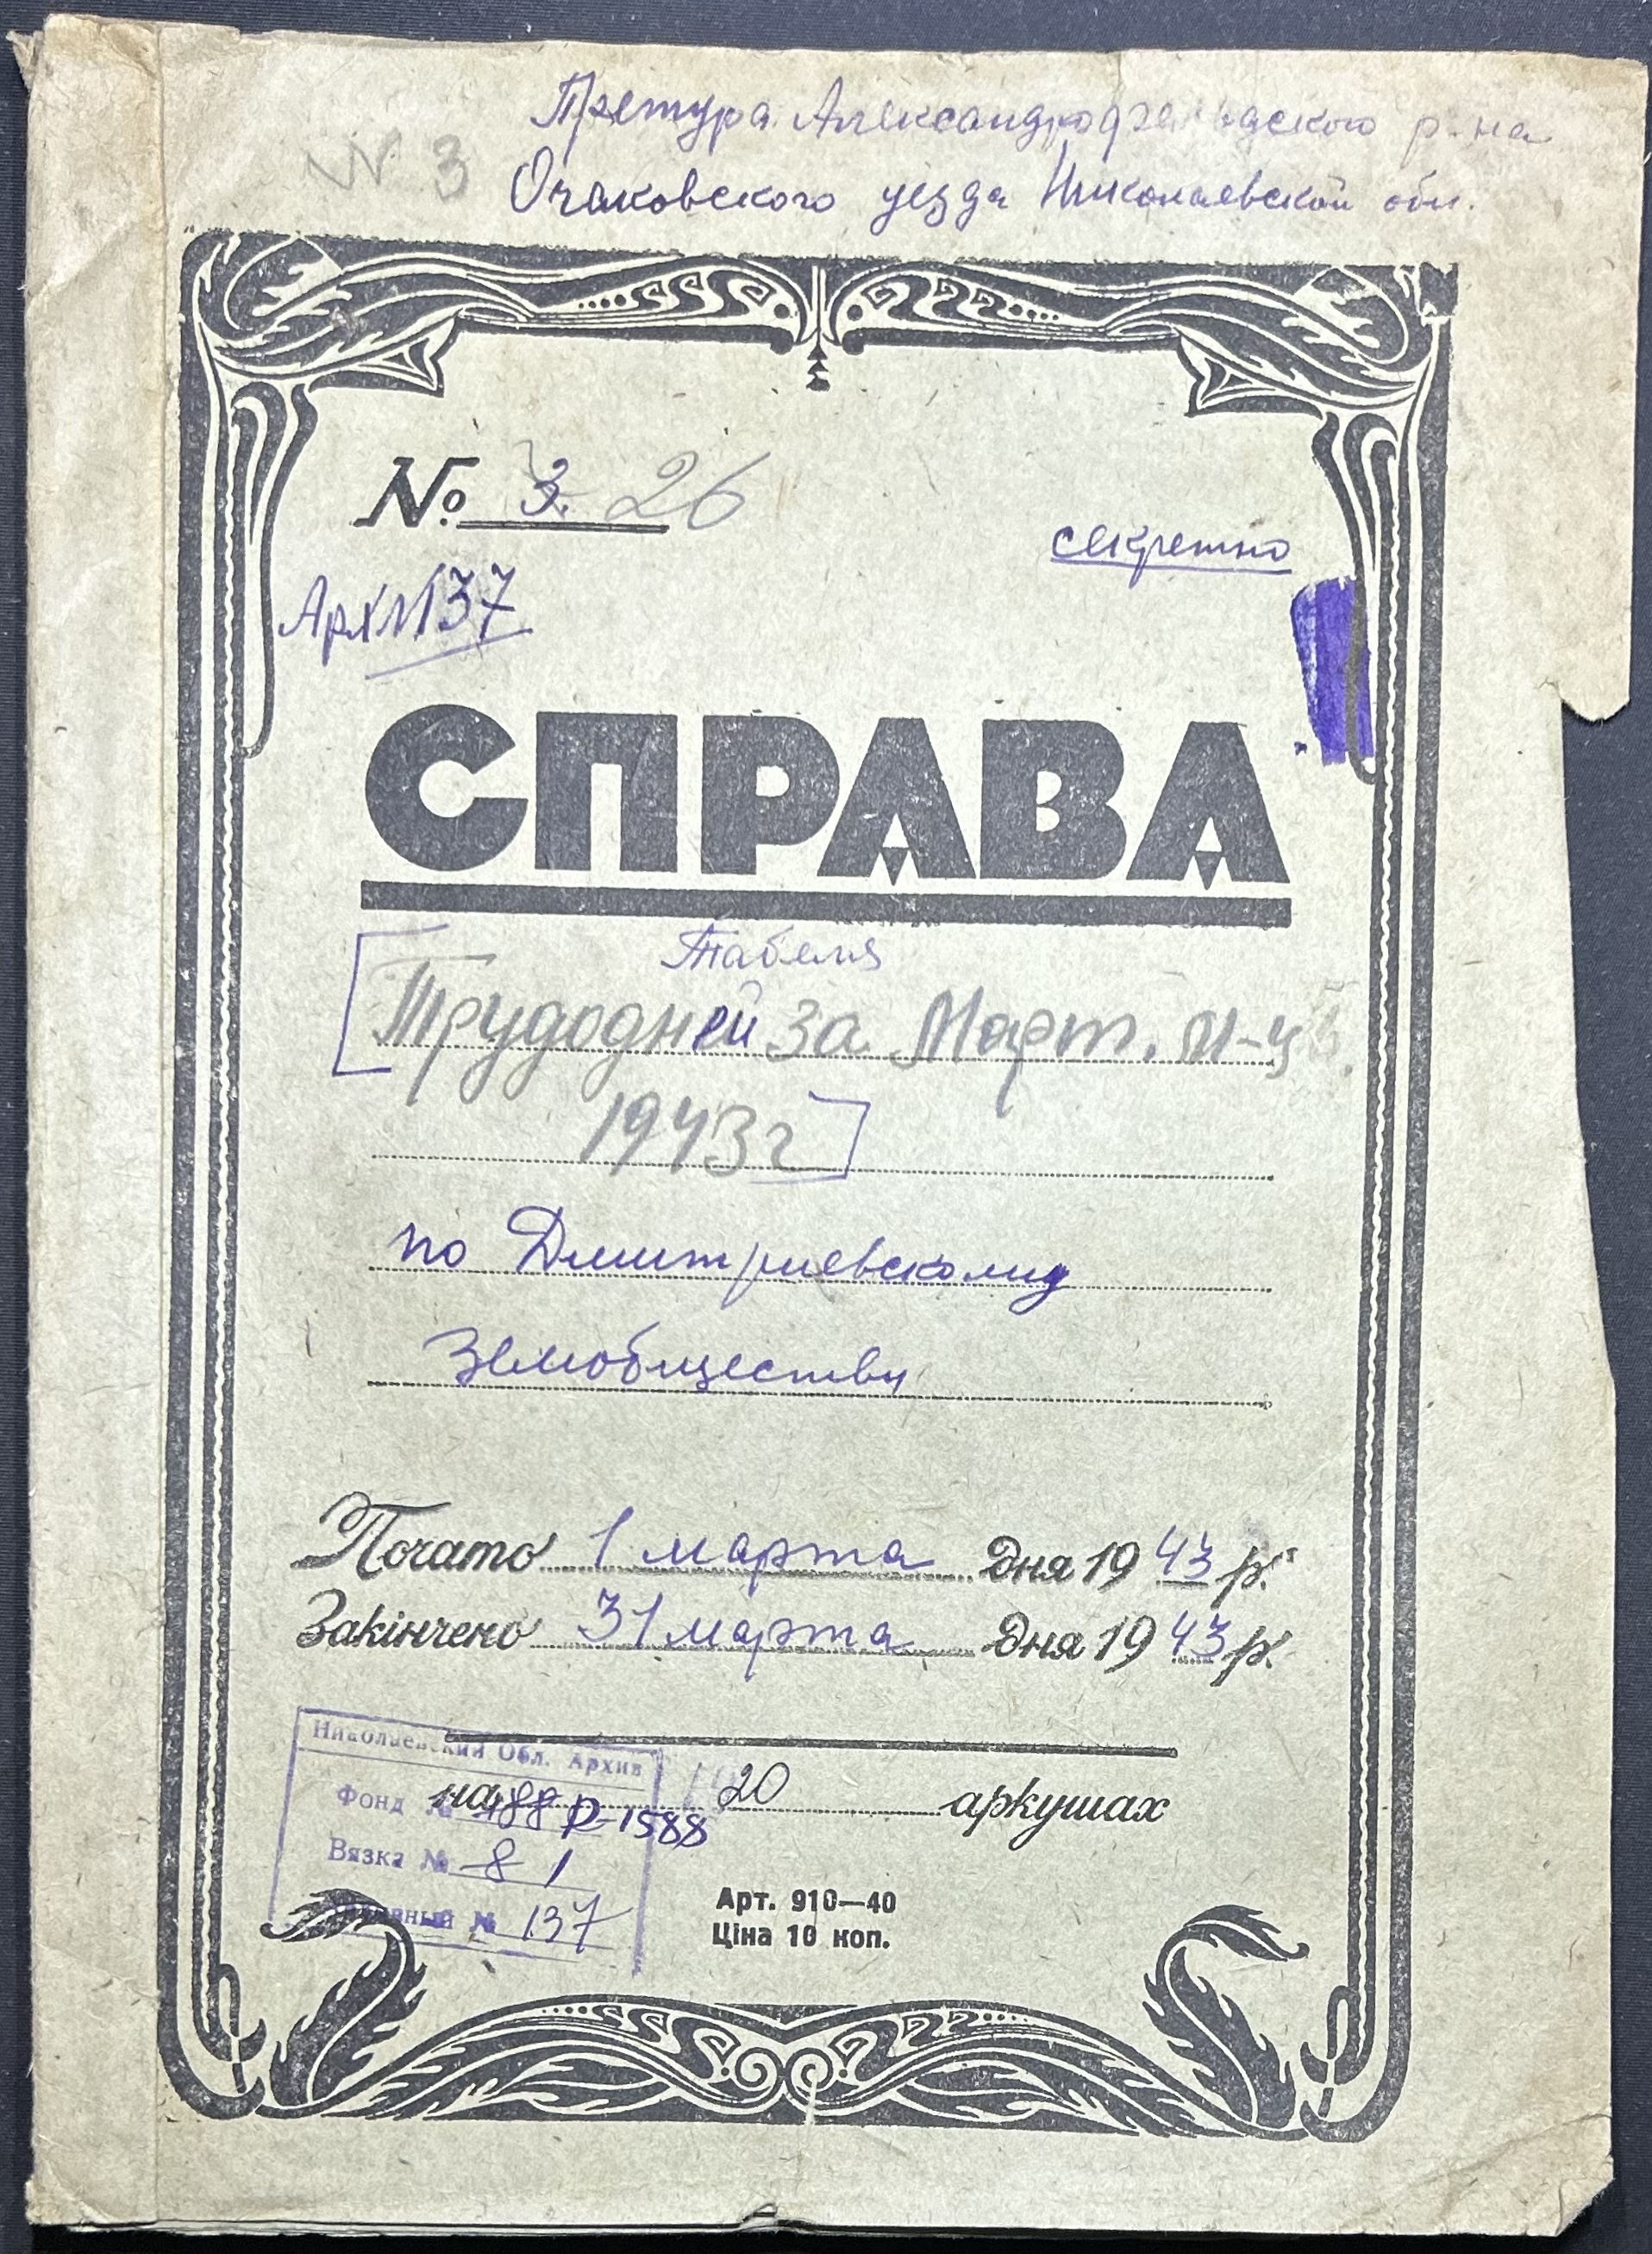 Претура Александрофельдского р-на
№ 3
Очаковского уезда Николаевской обл.
№ 3. 26
секретно
Арх № 137
СПРАВА
Табеля
Трудодней за Март. м-ц
1943 г
по Дмитриевскому
Земобществу
Почато 1 марта дня 1943 р.
Закінчено 31 марта дня 1943 р.
Николаевский Обл. Архив
на 20 аркушах
Фонд № 488 р-1588
Вязка № 8 1
№ 137
Арт. 910—40
Ціна 10 коп.